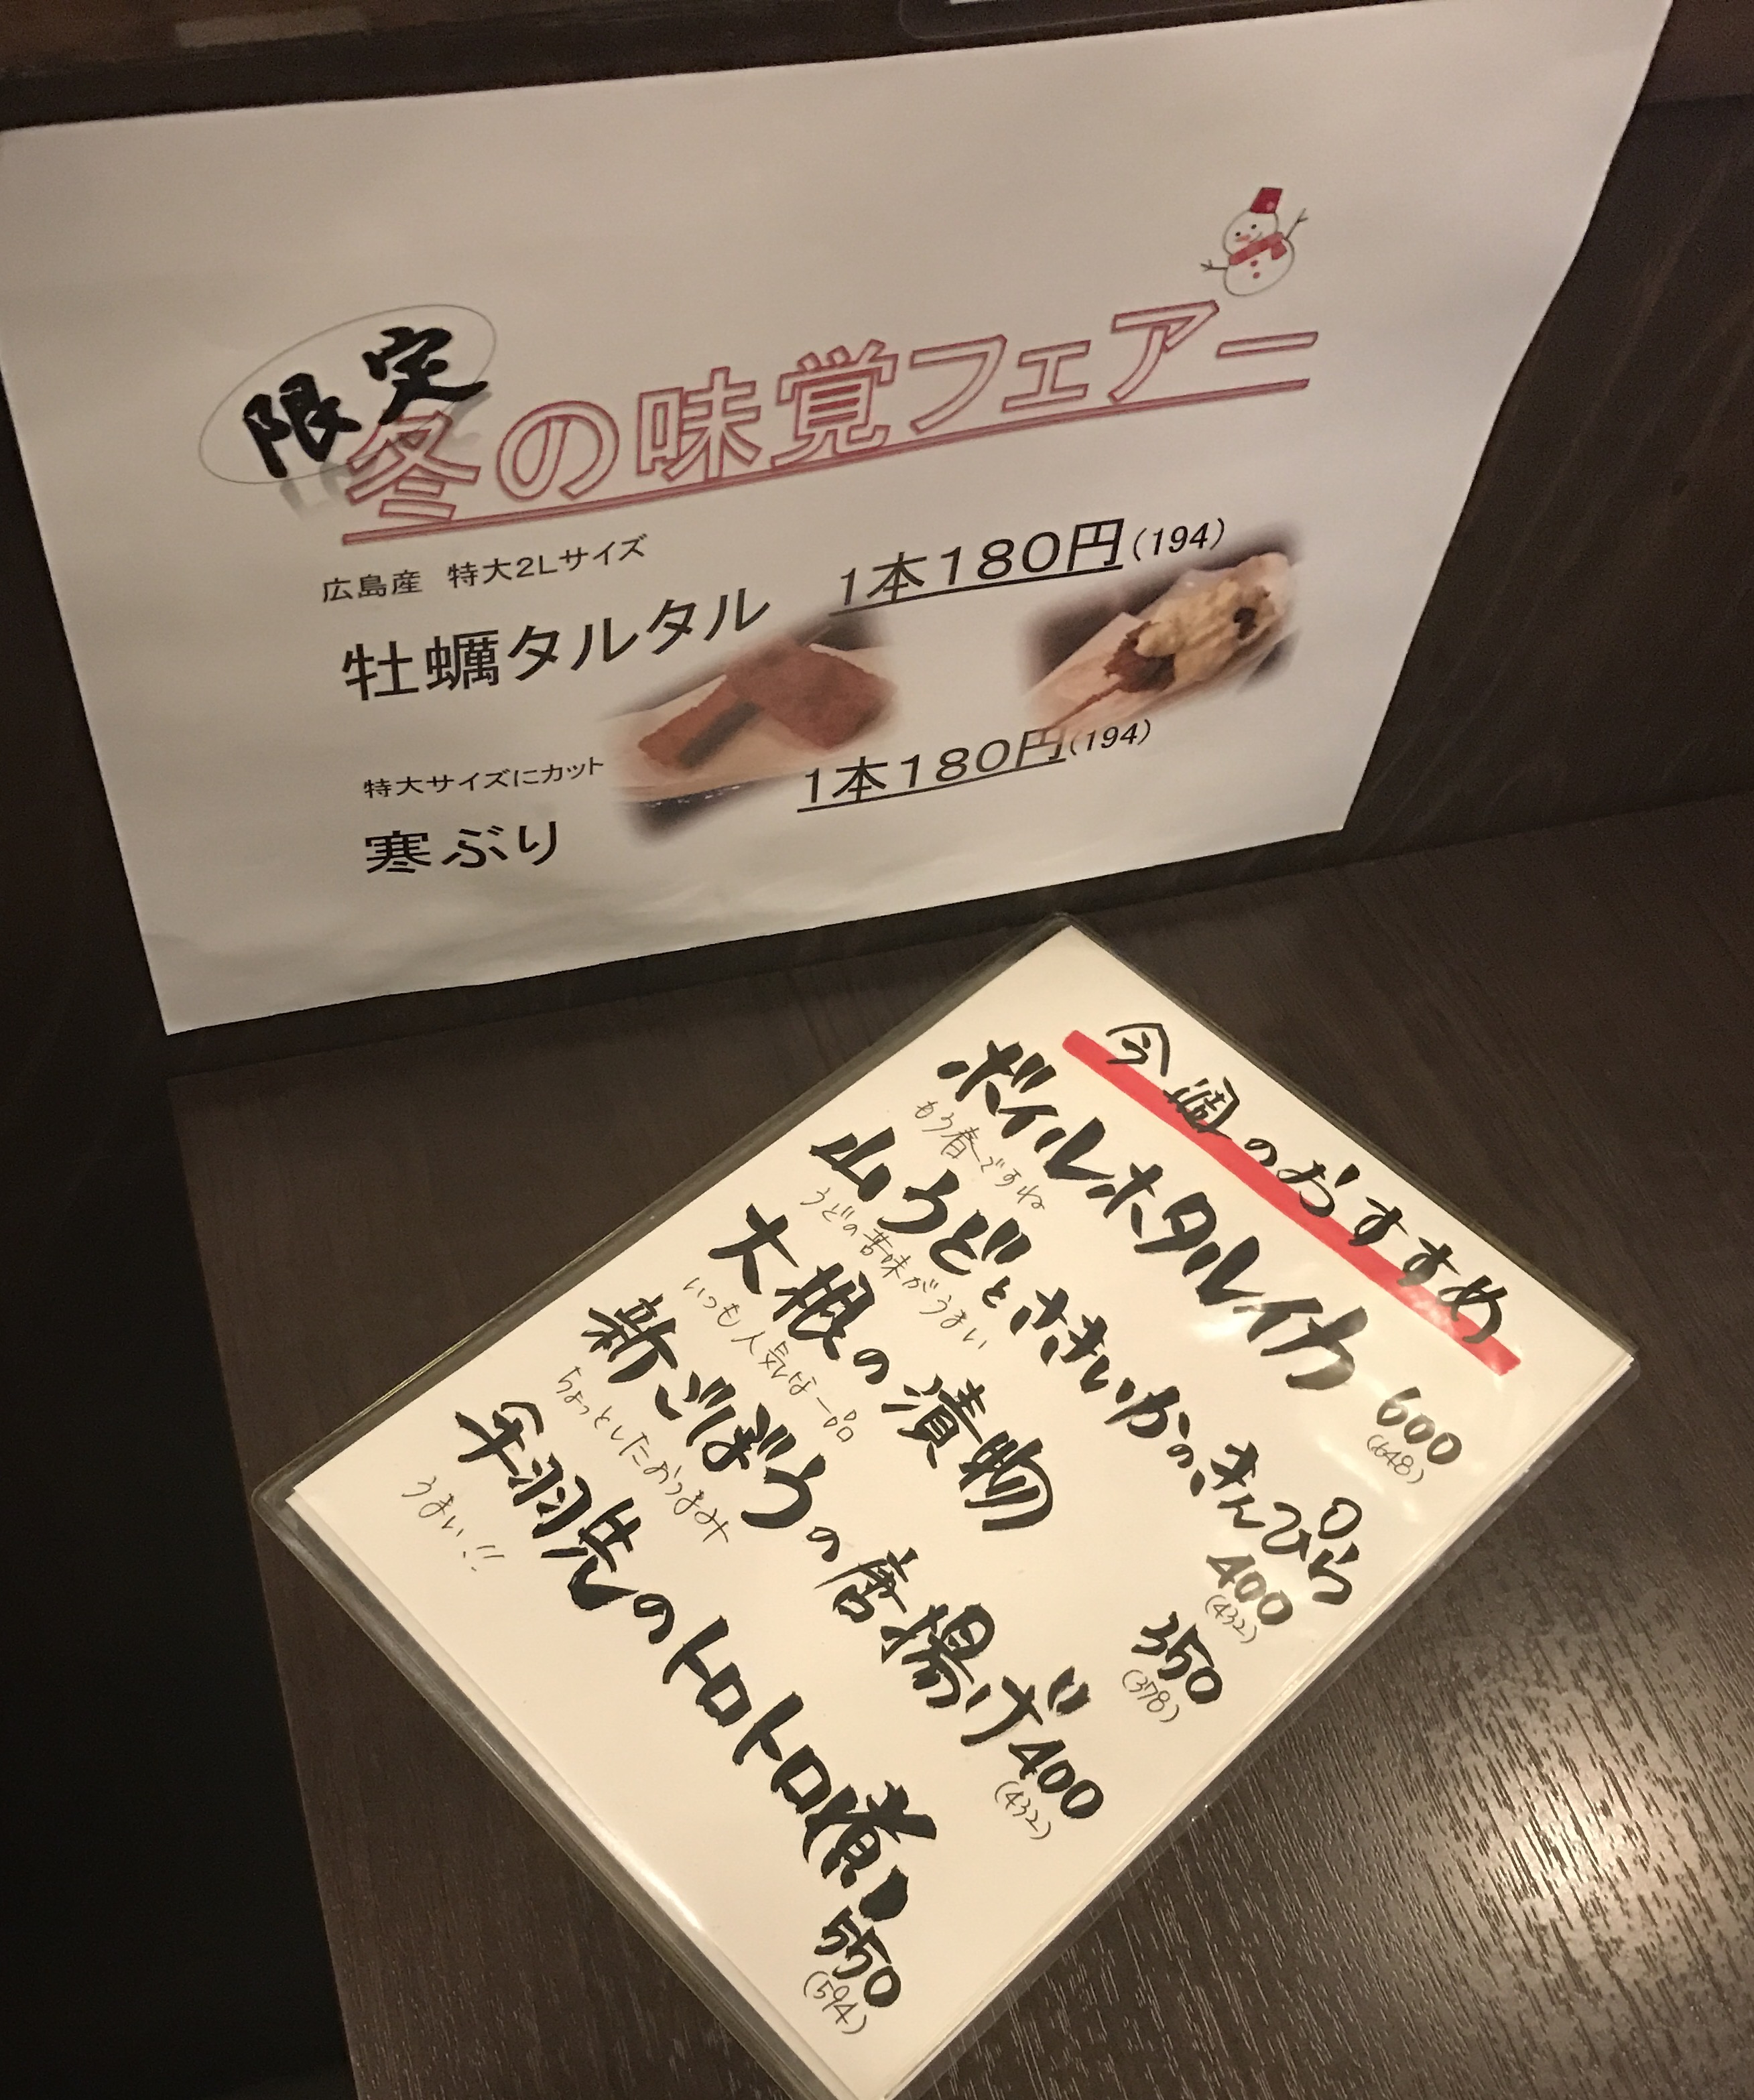 限定
冬の味覚フェアー
広島産 特大2Lサイズ
牡蠣タルタル 1本180円(194)
特大サイズにカット
寒ぶり 1本180円(194)
今週のおすすめ
ボイルホタルイカ 600
(648)
もう春ですね
山うどとさきいかのきんぴら
400
(432)
うどの苦味がうまい
大根の漬物 350
(378)
いつも人気な一品
新ごぼうの唐揚げ 400
(432)
ちょっとしたおつまみ
手羽先のトロトロ煮 550
(594)
うまい!!